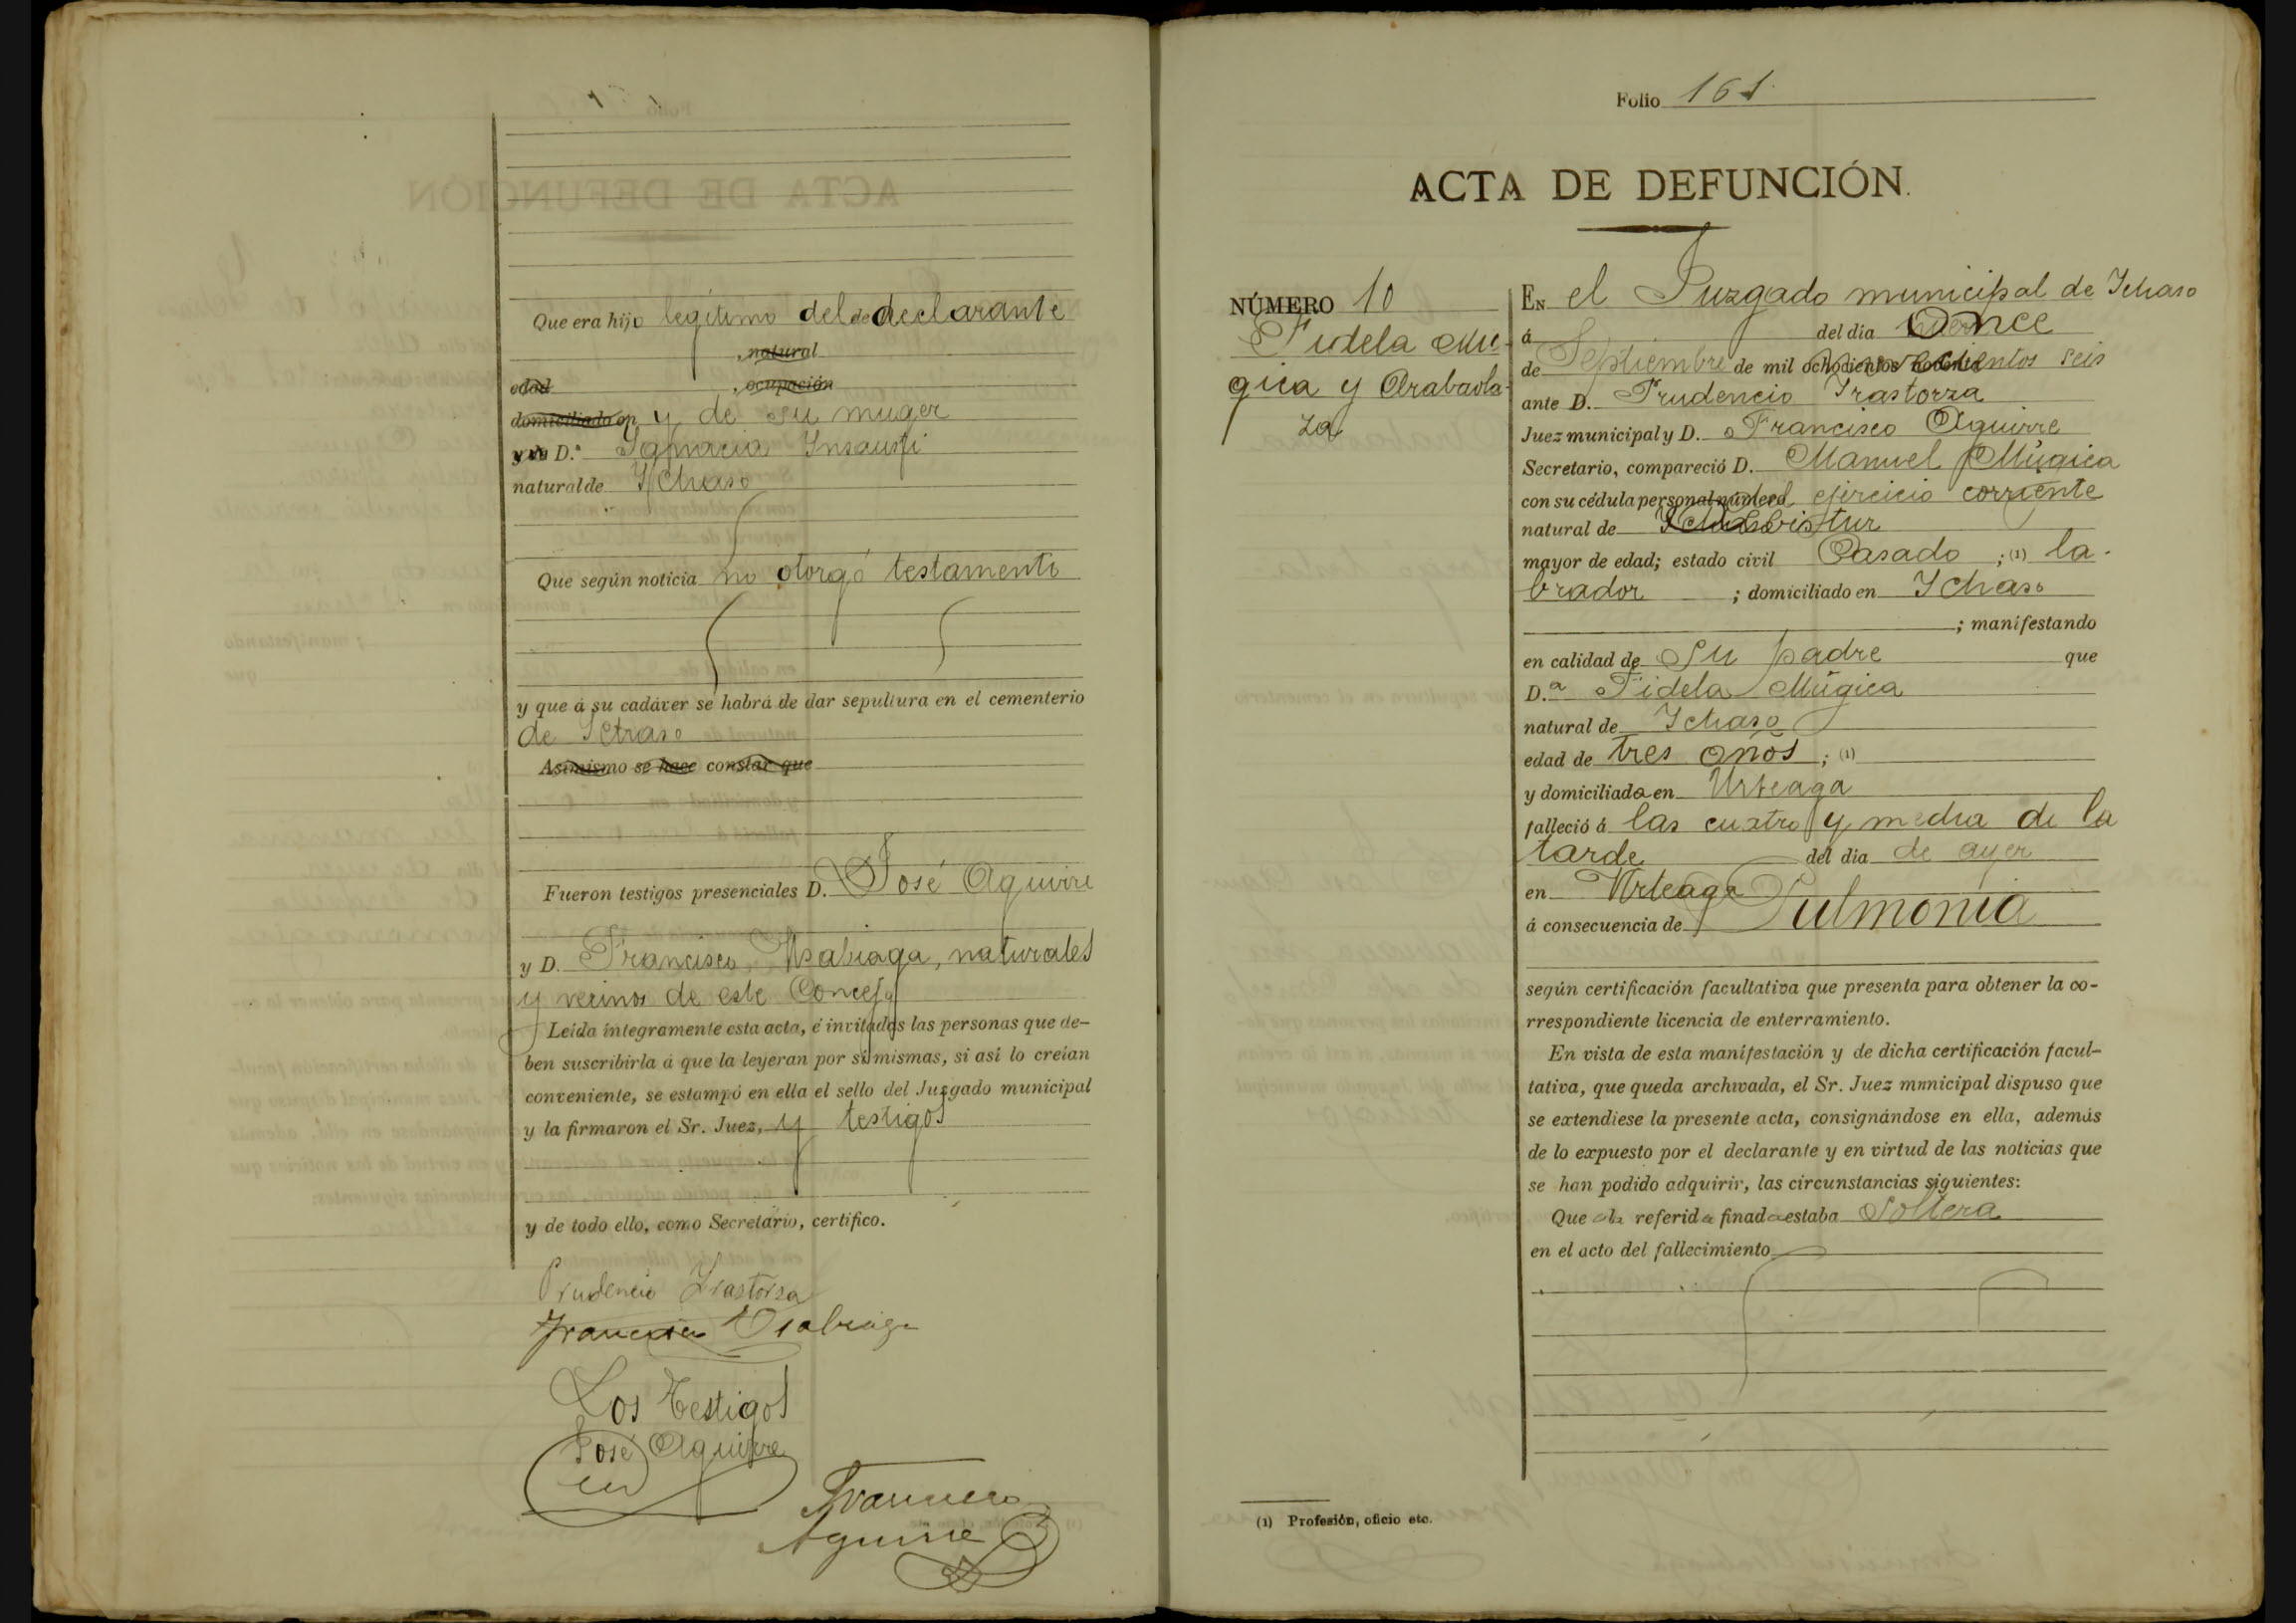 Que era hijo legítimo del de declarante
, natural
edad , ocupación
domiciliado en y de su muger
y de D.ª Ignacia Insausti
natural de Ychaso
Que según noticia no otorgó testamento
y que á su cadáver se habrá de dar sepultura en el cementerio
de Ychaso
Asimismo se hace constar que
Fueron testigos presenciales D. José Aguirre
y D. Francisco Usabiaga, naturales
y vecinos de este Concejo
Leída íntegramente esta acta, é invitadas las personas que de-
ben suscribirla á que la leyeran por sí mismas, si así lo creían
conveniente, se estampó en ella el sello del Juzgado municipal
y la firmaron el Sr. Juez, y testigos
y de todo ello, como Secretario, certifico.
Prudencio Yrastorza
Francisco Usabiaga
Los Testigos
José Aguirre
Francisco
Aguirre
Folio 161
ACTA DE DEFUNCIÓN.
NÚMERO 10
Fidela Mu-
gica y Arabaola-
za
EN el Juzgado municipal de Ychaso
á del día Once
de Septiembre de mil ochocientos noventa novecientos seis
ante D. Prudencio Yrastorza
Juez municipal y D. Francisco Aguirre
Secretario, compareció D. Manuel Múgica
con su cédula personal número del ejercicio corriente
natural de Albistur
mayor de edad; estado civil Casado ; (1) la-
brador ; domiciliado en Ychaso
; manifestando
en calidad de su padre que
D.ª Fidela Múgica
natural de Ychaso
edad de tres años ; (1)
y domiciliada en Urteaga
falleció á las cuatro y media de la
tarde del dia de ayer
en Urteaga
á consecuencia de Pulmonia
según certificación facultativa que presenta para obtener la co-
rrespondiente licencia de enterramiento.
En vista de esta manifestación y de dicha certificación facul-
tativa, que queda archivada, el Sr. Juez municipal dispuso que
se extendiese la presente acta, consignándose en ella, además
de lo expuesto por el declarante y en virtud de las noticias que
se han podido adquirir, las circunstancias siguientes:
Que la referida finada estaba Soltera
en el acto del fallecimiento
(1) Profesión, oficio etc.